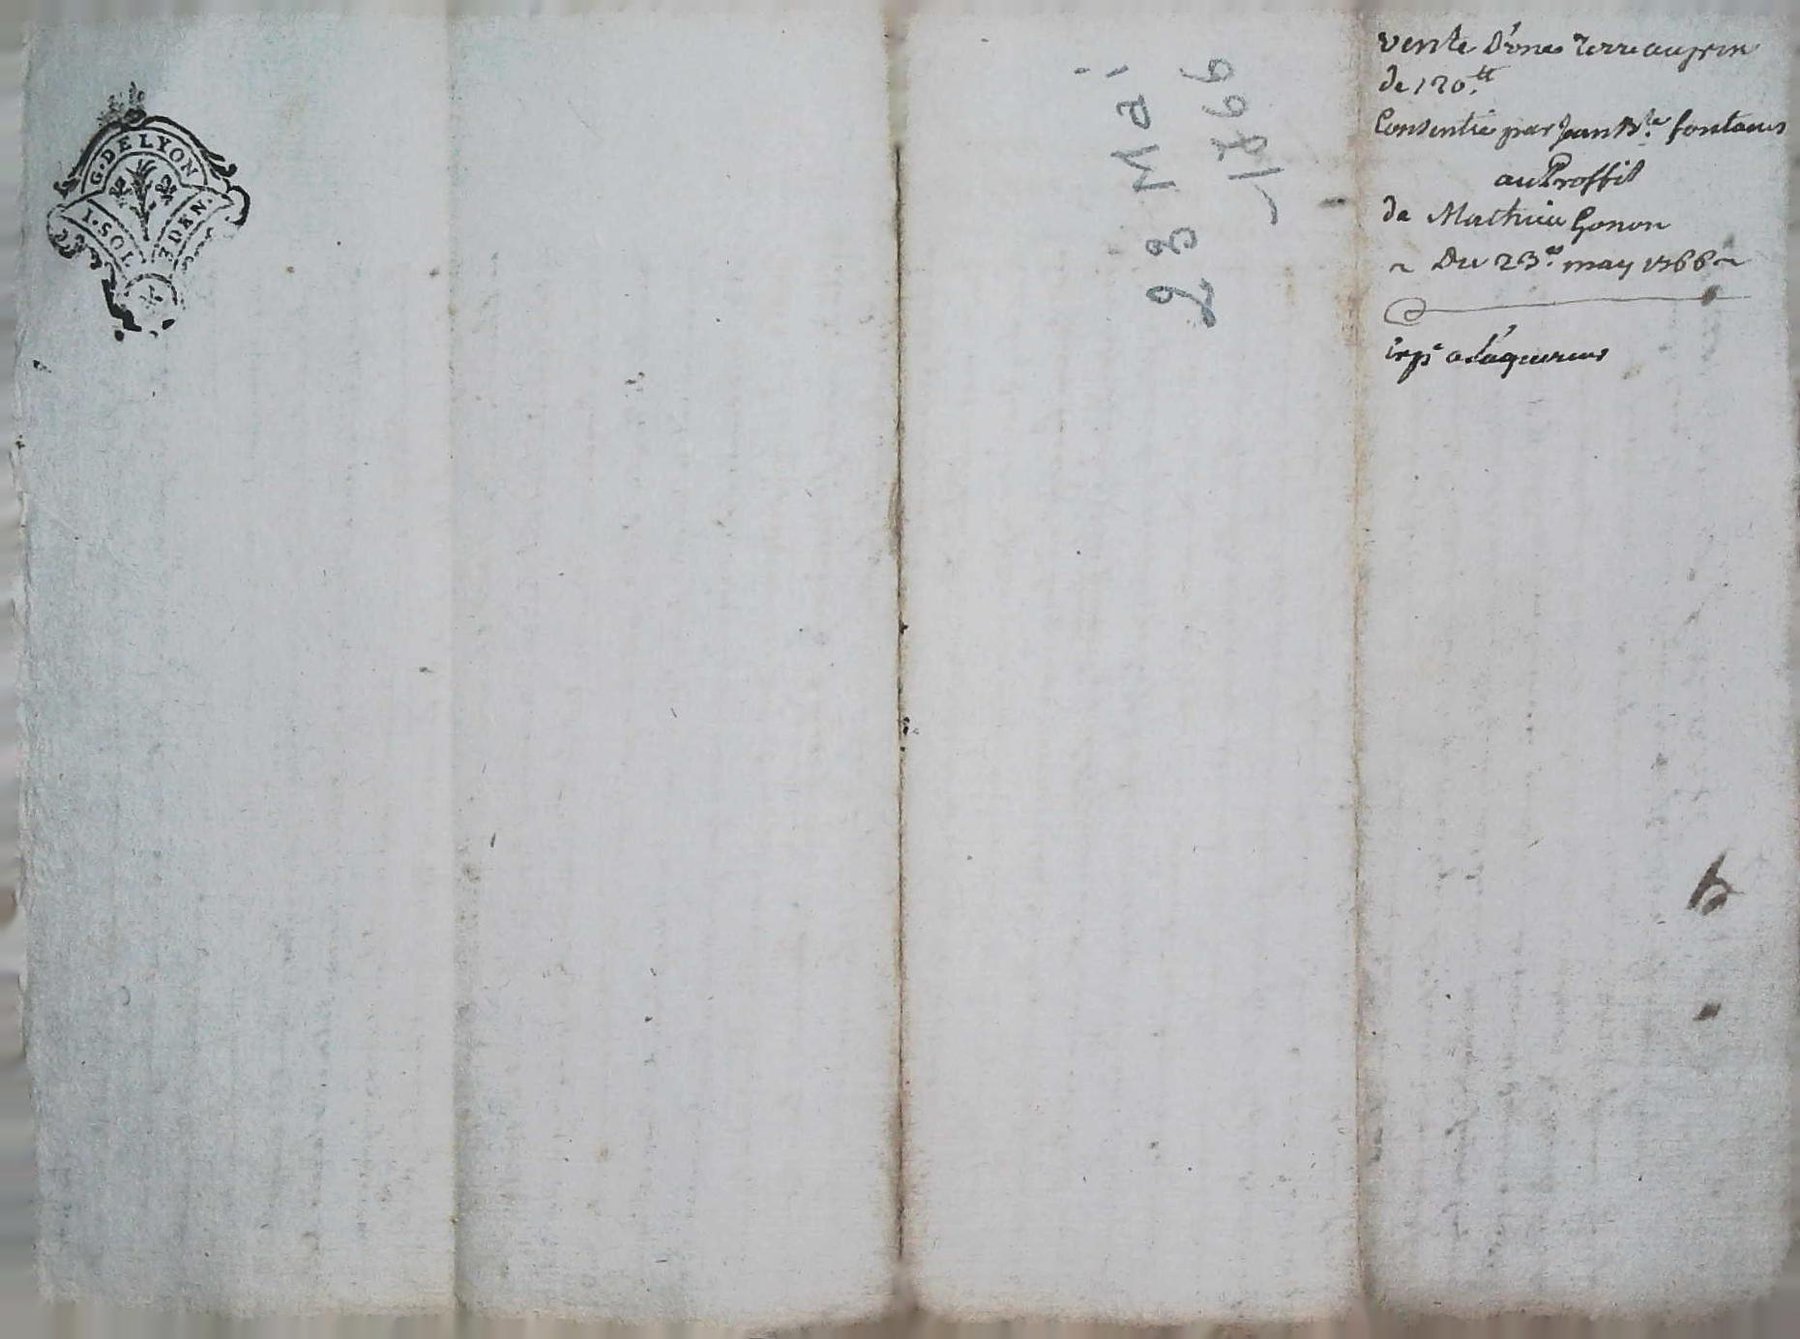 G. DE LYON
1. SOL 3 DEN.
23 Mai
1766
vente d'une Terre au prix
de 120.tt
Consentie par Jean B.te fontanes
au Proffit
de Mathieu Gonon
~ Du 23.e may 1766 ~
a l'aquereur